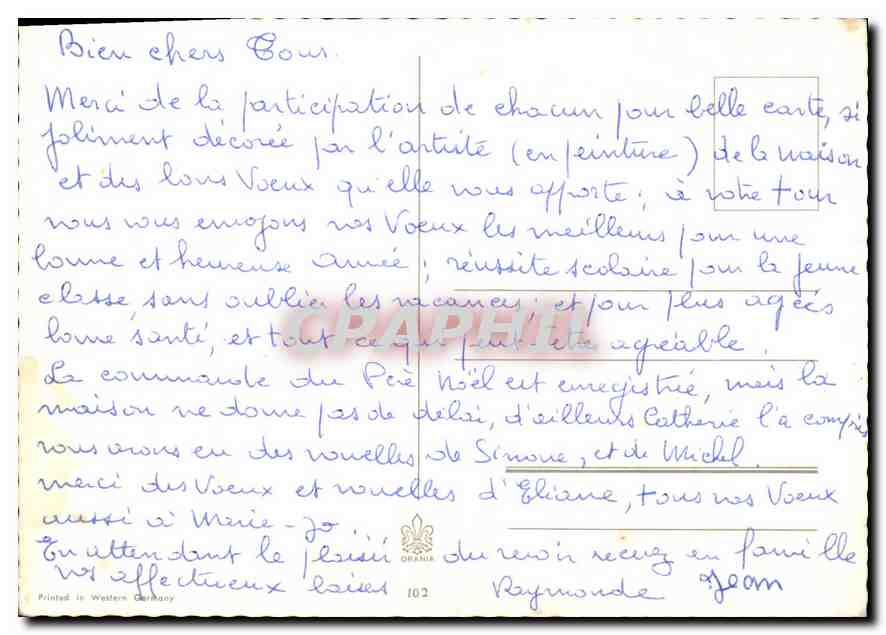 Bien chers Tous.
Merci de la participation de chacun pour belle carte, si
joliment décorée par l'artiste (en peinture) de la maison
et des bons Voeux qu'elle nous apporte ; à notre tour
nous vous envoyons nos Voeux les meilleurs pour une
bonne et heureuse année ; réussite scolaire pour la jeune
classe, sans oublier les vacances ; et pour plus agés
bonne santé, et tout ce qui peut être agréable.
CPAPHIL
La commande du Père Noël est enregistrée, mais la
maison ne donne pas de délai, d'ailleurs Catherine l'a compris
nous avons eu des nouvelles de Simone, et de Michel.
merci des Voeux et nouvelles d'Eliane, tous nos Voeux
aussi à Marie-Jo.
En attendant le plaisir du revoir recevez en famille
nos affectueux baisers Raymonde Jean
KRANIA
102
Printed in Western Germany